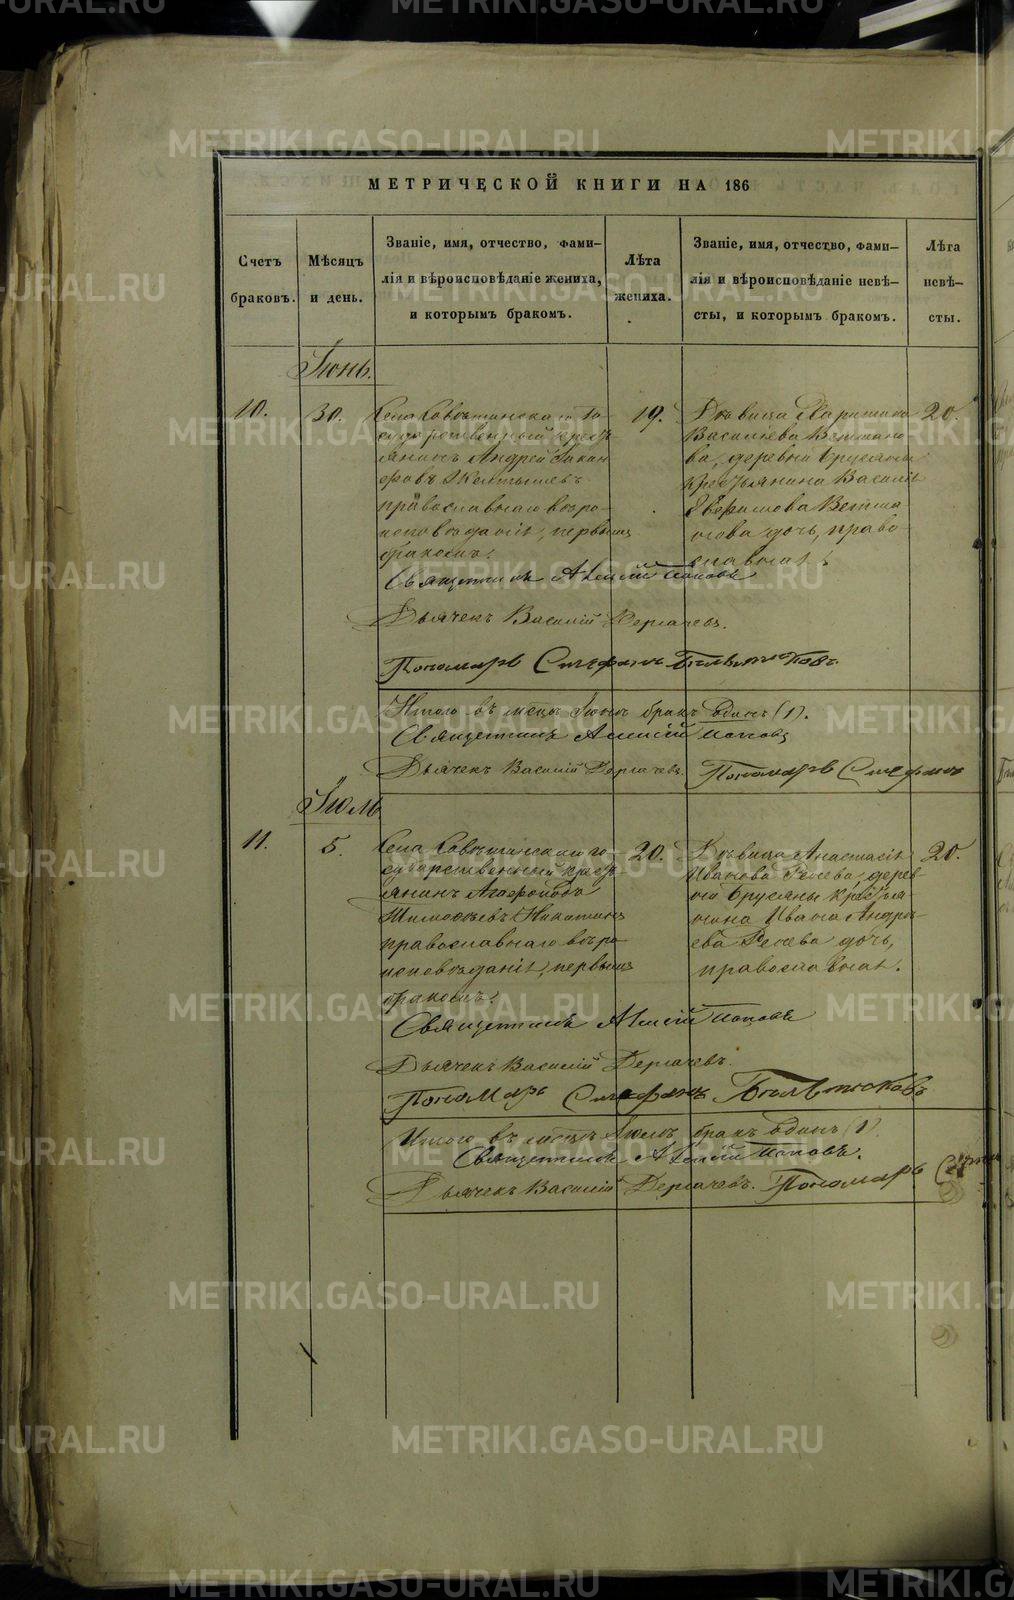 METRIKI.GASO-URAL.RU
МЕТРИЧЕСКОЙ КНИГИ НА 186
Счетъ браковъ.
Мѣсяцъ и день.
Званіе, имя, отчество, фами-
лія и вѣроисповѣданіе жениха,
и которымъ бракомъ.
Лѣта жениха.
Званіе, имя, отчество, фами-
лія и вѣроисповѣданіе невѣ-
сты, и которымъ бракомъ.
Лѣта невѣ-
сты.
Іюнь.
10.
30.
Села го-
сударственный кресть-
янинъ Андрей
православнаго вѣро-
исповѣданія, первымъ
бракомъ.
19.
Дѣвица
Васильева
ва, деревни Брусяны
крестьянина Василія
дочь, право-
славная
20.
Священникъ Алексій Поповъ
Дьячекъ Василій Дергачевъ.
Пономарь Стефанъ
Итого въ мѣсяцѣ Іюнѣ бракъ одинъ (1).
Священникъ Алексій Поповъ
Дьячекъ Василій Дергачевъ. Пономарь Стефанъ
Іюль
11.
5.
Села го-
сударственный кресть-
янинъ
Никитинъ
православнаго вѣро-
исповѣданія, первымъ
бракомъ.
20.
Дѣвица Анастасія
Иванова дерев-
ни Брусяны кресть-
янина Ивана Андре-
ева дочь,
православная.
20.
Священникъ Алексій Поповъ
Дьячекъ Василій Дергачевъ.
Пономарь Стефанъ
Итого въ мѣсяцѣ Іюлѣ бракъ одинъ (1)
Священникъ Алексій Поповъ.
Дьячекъ Василій Дергачевъ. Пономарь